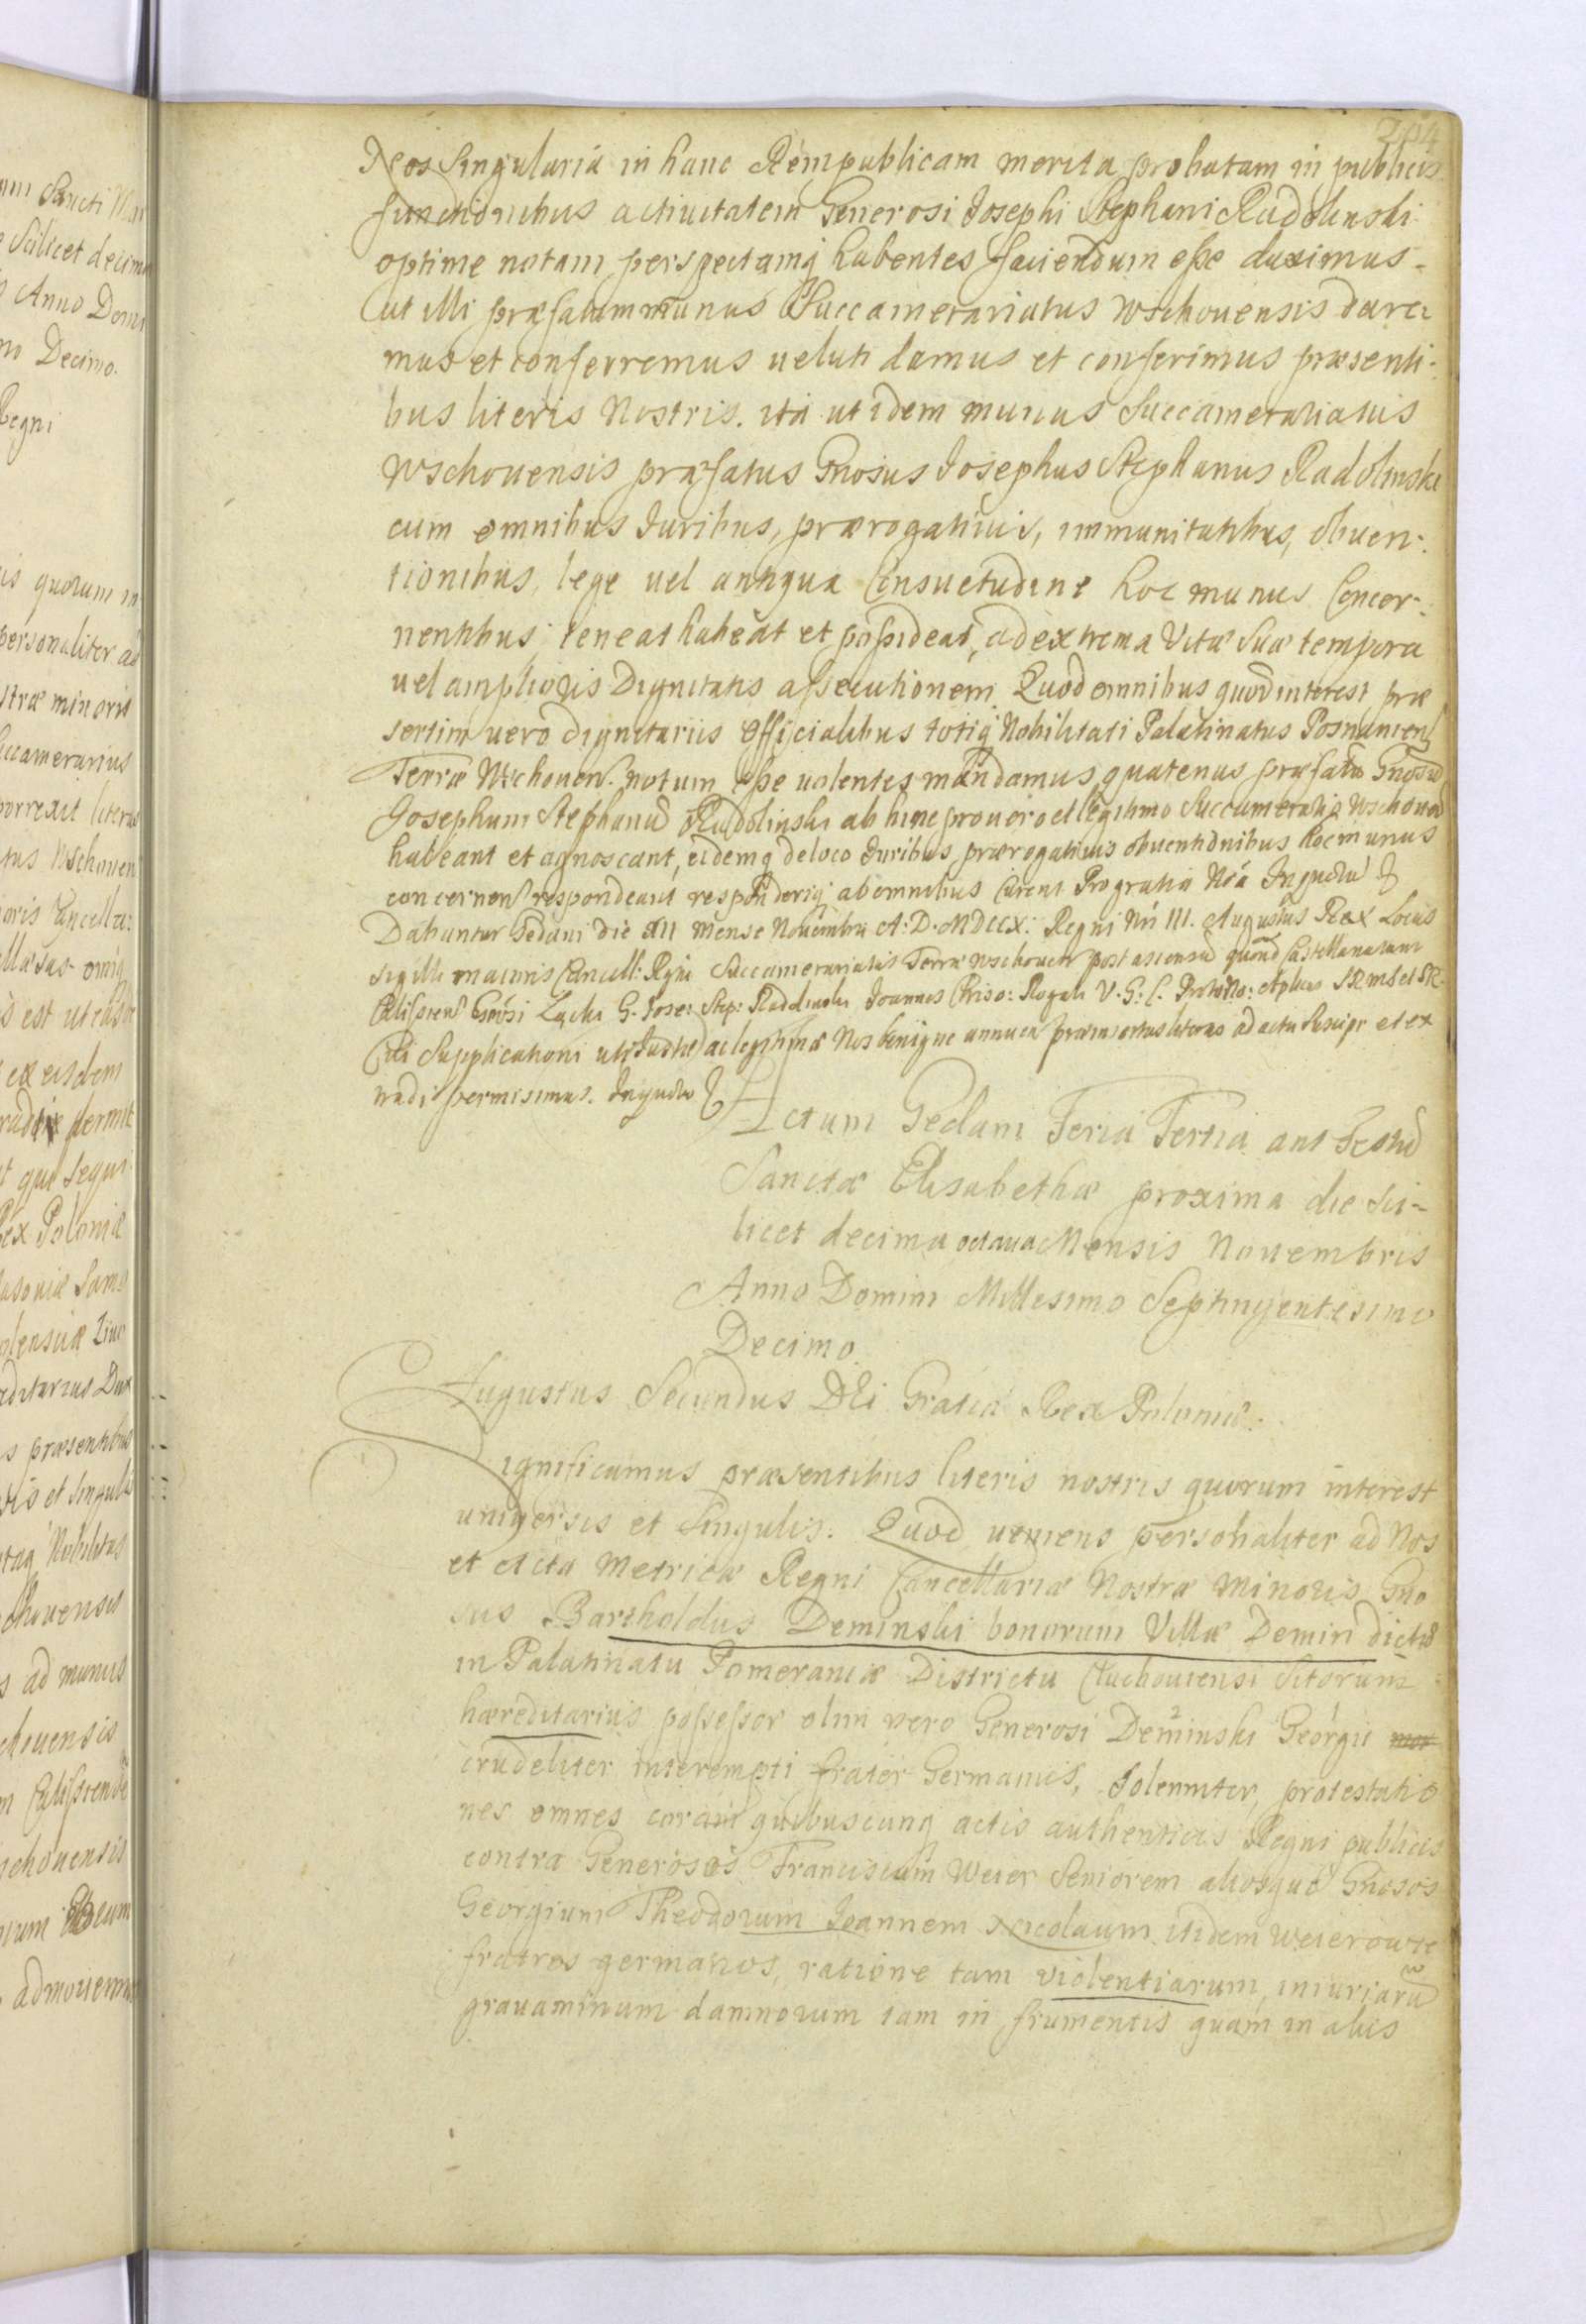 204
Nos Singularia in hanc Rempublicam merita probatam in publicis
functionibus actiuitatem Generosi Josephi Stephani Radolinski
optime notam perspectamq habentes faciendum esse duximus
ut illi præfatum munus Succamerariatus Wschouensis dare:
mus et conferremus ueluti damus et conferimus præsenti:
bus literis Nostris. ita ut idem munus Succamerariatus
Wschouensis præfatus Gnosus Josephus Stephanus Radolinski
cum omnibus Juribus, prærogatiuis, immunitatibus, obuen:
tionibus, lege uel antiqua Consuetudine hoc munus Concer:
nentibus, teneat habeat et possideat, ad extrema Vitæ Suæ tempora
uel amplioris Dignitatis assecutionem. Quod omnibus quod interest, præ
sertim uero dignitariis Officialibus totiq Nobilitati Palatinatus Posnanien
Terræ Wschouen. notum esse uolentes mandamus quatenus præfatu Gnosu
Josephum Stephanu Radolinski ab hinc pro uero et legitimo Succamerario Wschouen
habeant et agnoscant, eidemq de loco Juribus prærogatiuis obuentionibus hoc munus
concernen respondeant responderiq ab omnibus Curent Pro gratia Nra Injuctu
Dabantur Gedani die XII Mense Nouembri A: D. MDCCX: Regni Nri III. Augustus Rex Locus
sigilli maioris Cancell: Regni Succamerariatus Terræ Wschouen post ascensu quond Castellanatum
Calissien Gnosi Zychi G. Jose: Step: Radolinski Joannes Chriso: Rogali V. G: C. ProtoNo: Aplicus SRMS et SR
Cui Supplicationi uti Justæ ac legitimæ Nos benigne annuen præinsertas literas ad acta Suscipi et ex
tradi permisimus. Injuctu
Actum Gedani Feria Tertia ant Festu
Sanctæ Elisabethæ proxima die Sci-
licet decima octaua Mensis Nouembris
Anno Domini Millesimo Septingentesimo
Decimo.
Augustus Secundus DEi Gratia Rex Poloniæ.
Significamus præsentibus literis nostris quorum interest
uniuersis et Singulis. Quod ueniens personaliter ad Nos
et Acta Metricæ Regni Cancellariæ Nostræ Minoris Gno
sus Bartholdus Deminski bonorum Villæ Demin dictæ
in Palatinatu Pomeraniæ Districtu Cluchouiensi Sitorum
hæreditarius possessor olim vero Generosi Deminski Georgii
crudeliter interempti frater Germanus, Solenniter, protestatio
nes omnes coram quibuscunq actis authenticis Regni publicis
contra Generosos Franciscum Weier Seniorem aliosque Gnosos
Georgium Theodorum Joannem Nicolaum itidem Weierowie
fratres germanos, ratione tam violentiarum, iniuriaru
grauaminum damnorum iam in frumentis quam in aliis